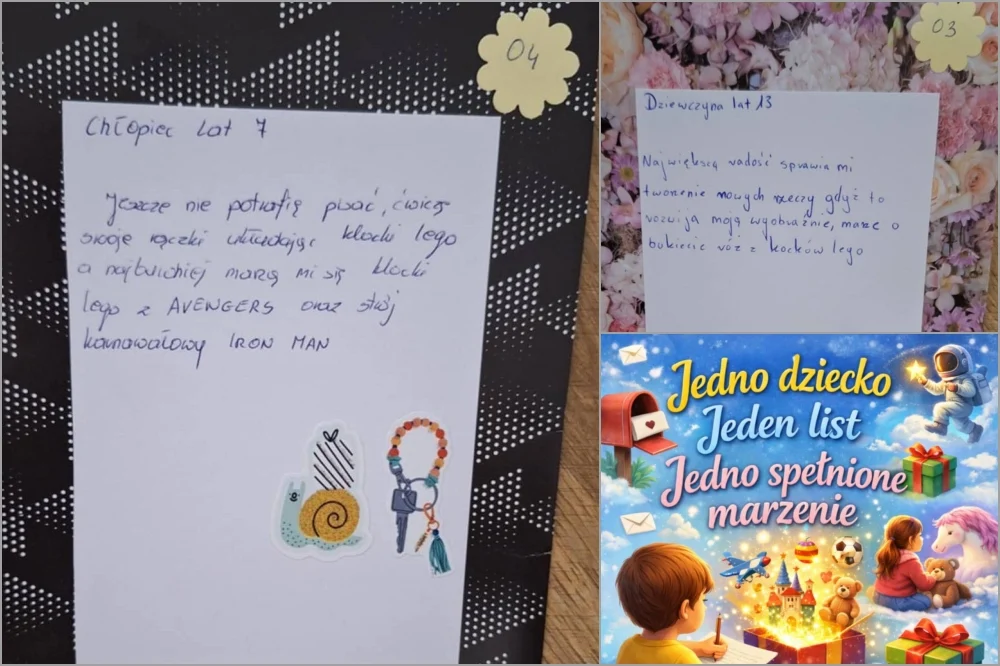 04
Chłopiec lat 7
Jeszcze nie potrafię pisać, ćwiczę
swoje rączki układając klocki lego
a najbardziej marzą mi się klocki
lego z AVENGERS oraz strój
karnawałowy IRON MAN
03
Dziewczyna lat 13
Największą radość sprawia mi
tworzenie nowych rzeczy gdyż to
rozwija moją wyobraźnię, marzę o
bukiecie róż z klocków lego
Jedno dziecko
Jeden list
Jedno spełnione
marzenie